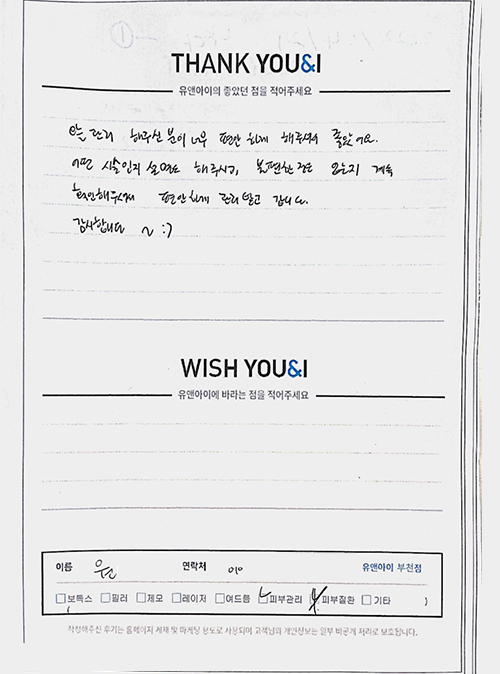 THANK YOU&I
유앤아이의 좋았던 점을 적어주세요
오늘 관리 해주신 분이 너무 편안하게 해주셔서 좋았어요.
어떤 시술인지 설명도 해주시고, 불편한 점은 없는지 계속
확인해주셔서 편안하게 관리 받고 갑니다.
감사합니다 ~ :)
WISH YOU&I
유앤아이에 바라는 점을 적어주세요
이름 연락처 010 유앤아이 부천점
보톡스 필러 제모 레이저 여드름 피부관리 피부질환 기타 ( )
작성해주신 후기는 홈페이지 게재 및 마케팅 용도로 사용되며 고객님의 개인정보는 일부 비공개 처리로 보호됩니다.